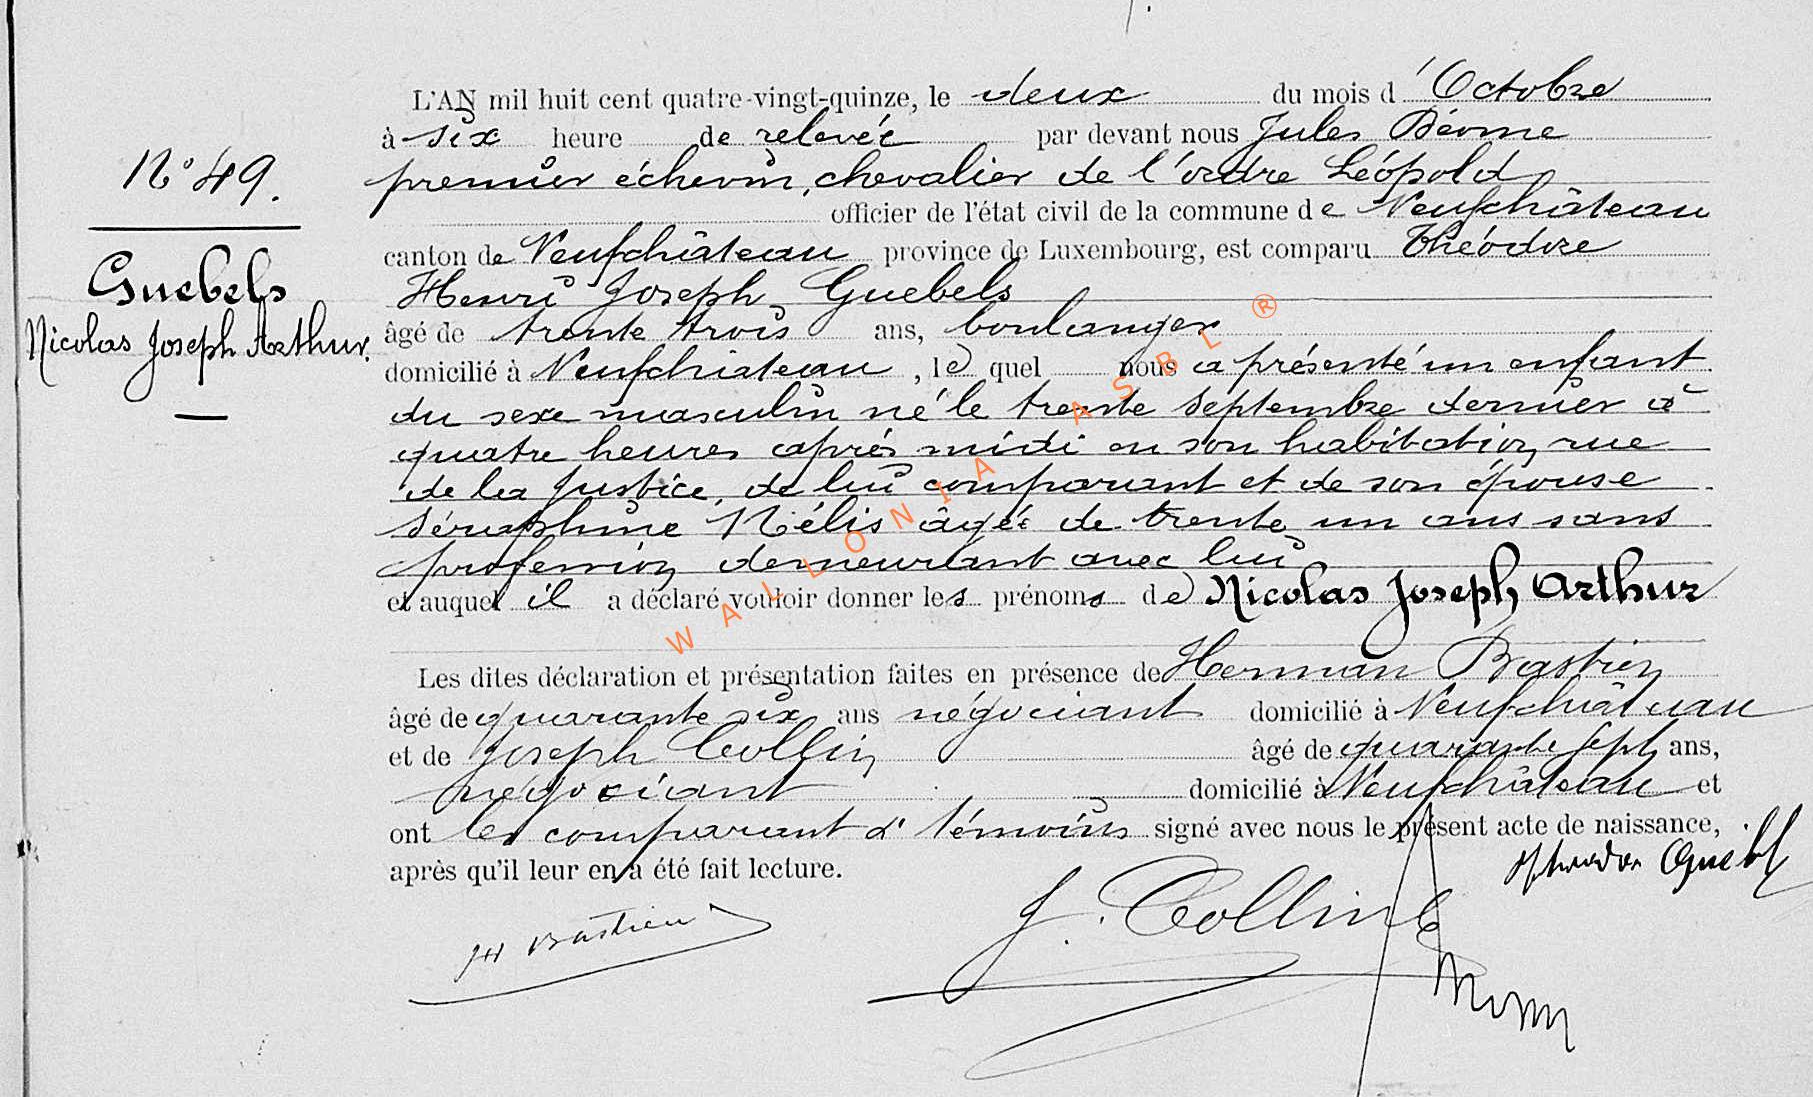 L'AN mil huit cent quatre-vingt-quinze, le deux du mois d'Octobre
à six heure de relevée par devant nous Jules
premier échevin, chevalier de l'ordre Léopold
officier de l'état civil de la commune de Neufchâteau
canton de Neufchâteau province de Luxembourg, est comparu Théodore
Henri Joseph Guebels
âgé de trente trois ans, boulanger
domicilié à Neufchâteau, le quel nous a présenté un enfant
du sexe masculin né le trente Septembre dernier à
quatre heures après midi en son habitation, rue
de la Justice, de lui comparant et de son épouse
Séraphine Nélis âgée de trente un ans sans
profession demeurant avec lui
et auquel il a déclaré vouloir donner les prénoms de Nicolas Joseph Arthur
Les dites déclaration et présentation faites en présence de Herman Bastien
âgé de quarante six ans négociant domicilié à Neufchâteau
et de Joseph Collin âgé de quarante sept ans,
négociant domicilié à Neufchâteau et
ont les comparant & témoins signé avec nous le présent acte de naissance,
après qu'il leur en a été fait lecture.
N° 49.
Guebels
Nicolas Joseph Arthur.
H Bastien
J. Collin
WALLONIA ASBL ®